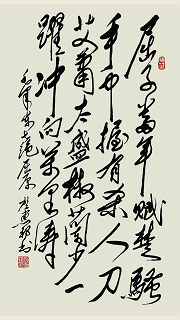 屈子当年赋楚骚
手中握有杀人刀
艾萧太盛椒兰少一
跃冲向万里涛
毛东屈原